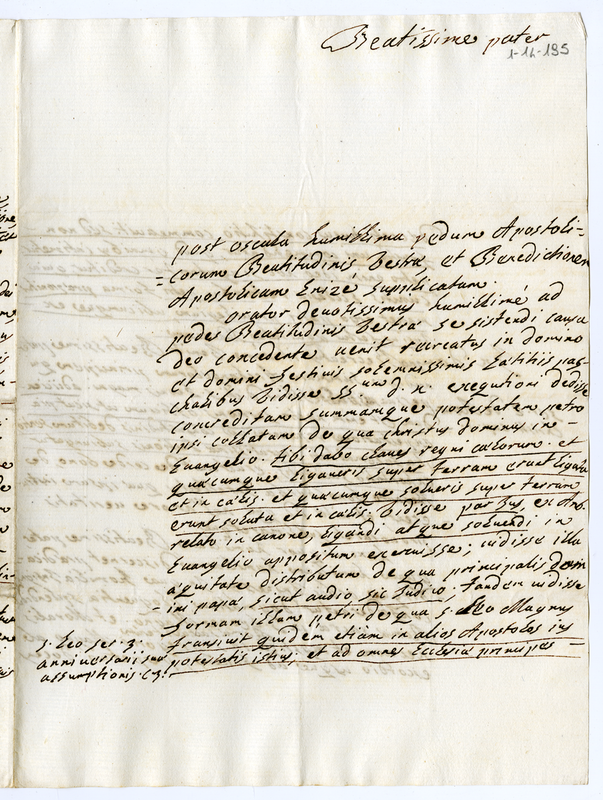 Beatissime pater
1-12-195
post oscula humillima pedum Apostoli=
=corum Beatitudinis Vestræ et Benedictionem
Apostolicam enixe supplicatam.
orator devotissimus humillime ad
pedes Beatitudinis Vestræ se sistendi causa
deo concedente venit in domino
et domini festivis solemnissimis lætitiis pas=
chalibus Vidisse SS. d. n. exequtioni dedisse
concreditam summamque potestatem petro
ipsi collatam de qua Christus dominus in
Euangelio. tibi dabo claues regni cælorum. et
quæcumque ligaueris super terram erunt ligata
et in cælis. et quæcumque solueris super terram
erunt soluta et in cælis. Vidisse par
relato in canone, ligandi atque soluendi in
Euangelio appositum exercuisse; uidisse illa
æquitate distributam de qua principalis dom
ini papa, sicut audio sic Iudico, tandem uidisse
formam illam petri de qua S. Leo Magnus
transiuit quidem etiam in alios Apostolos ius
potestatis istius; et ad omnes Ecclesiæ principes
S. Leo ser. 3.
anniuersarii suæ
assumptionis. c. 3.